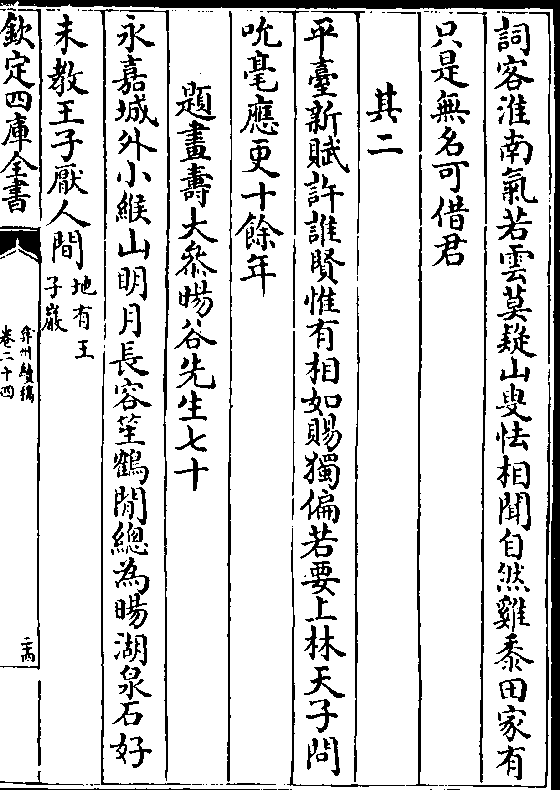 詞客淮南氣若雲莫疑山叟怯相聞自然雞黍田家有
只是無名可借君
其二
平臺新賦許誰賢惟有相如賜獨偏若要上林天子問
吮毫應更十餘年
題畫壽大叅暘谷先生七十
永嘉城外小緱山明月長容笙鶴閒總為暘湖泉石好
未教王子厭人間地有王
子巖
欽定四庫全書
弇州續稿
卷二十四